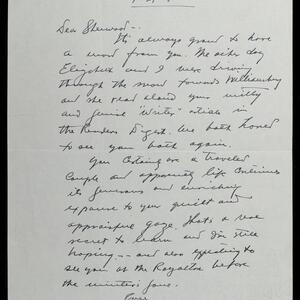 Dear Sherwood -
It's always good to have
a word from you. The other day
Elizabeth and I were driving
through the snow towards Williamsburg
and she read aloud your witty
and genial "Writer" article in
the Readers Digest. We both howled
to see you both again.
You certainly are a traveled
couple and apparently life continues
its generous and enriching
exposure to your quiet and
appraising gaze. That's a real
secret to learn and I'm still
hoping - and also expecting to
see you at the Royalton before
the winter's gone.